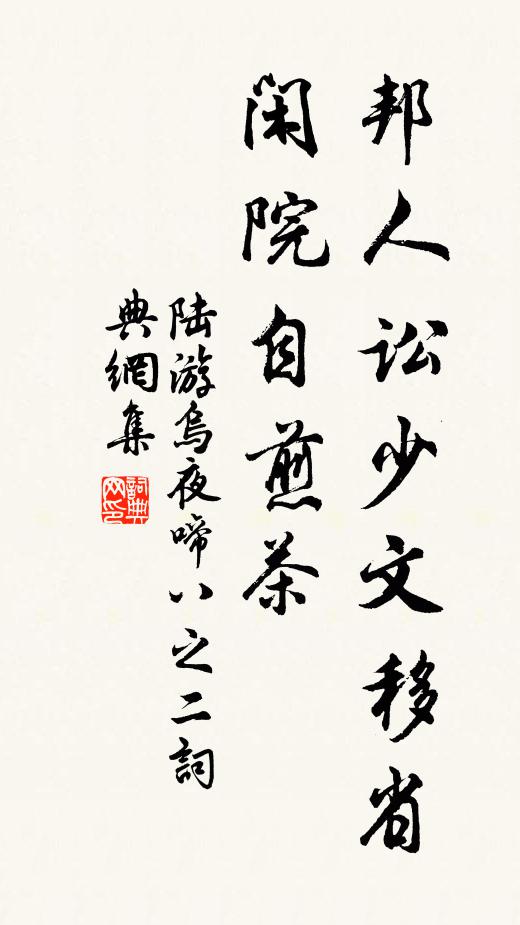 邦人訟少文移省
閑院自煎茶
陆游烏夜啼八之二詞
典網集
詞典网印